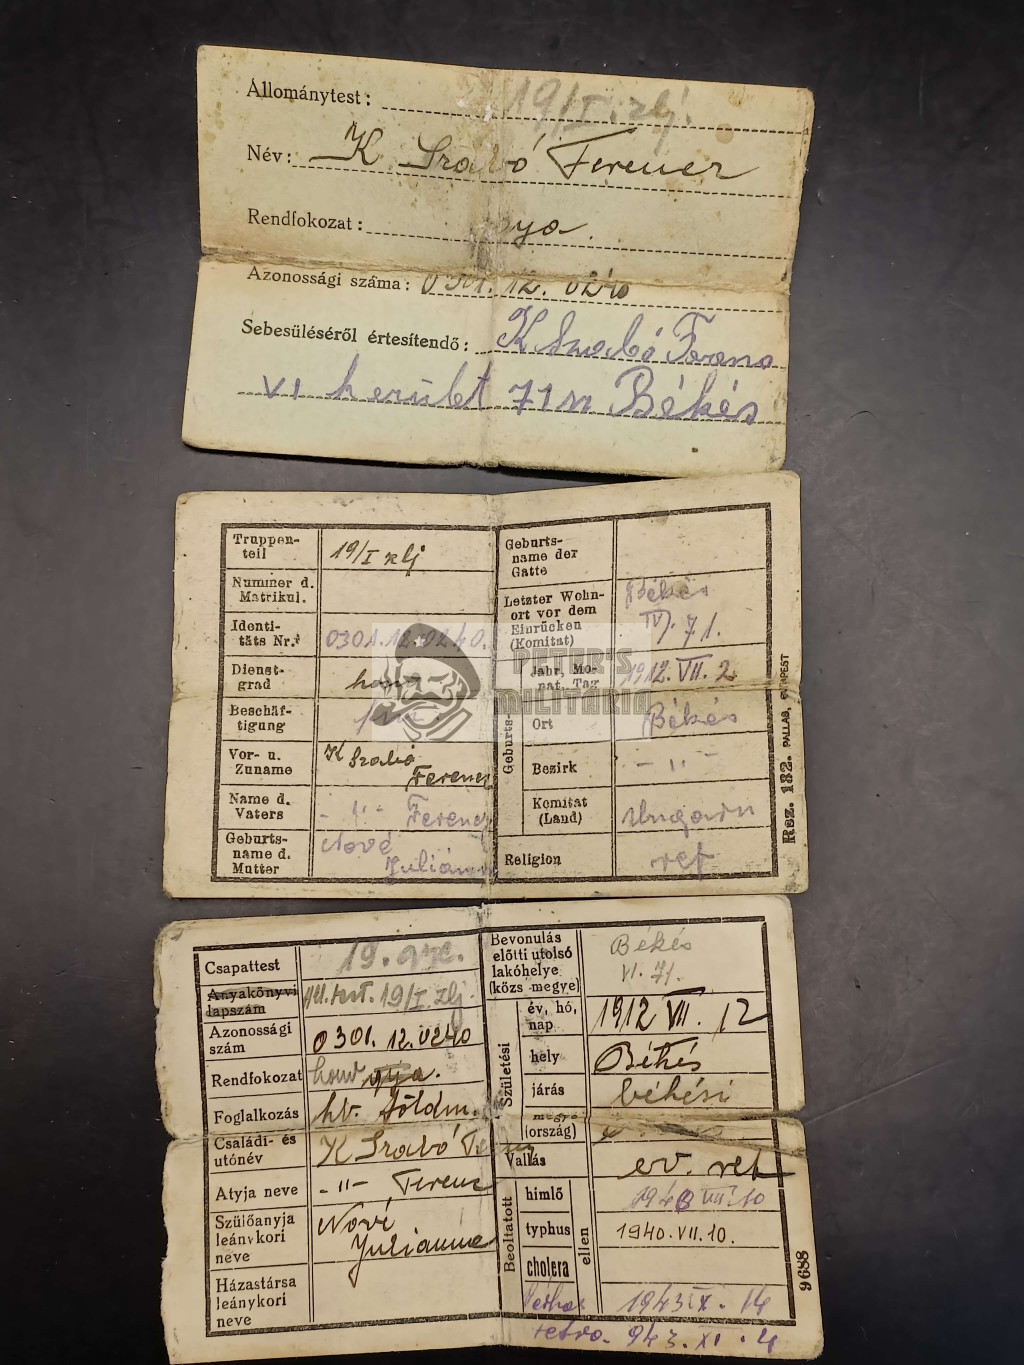 Állománytest: 19/I. zlj.
Név: K Szabó Ferencz
Rendfokozat:
Azonossági száma: 0301.12.0240
Sebesüléséről értesítendő: K Szabó
VI kerület 71 Békés
Truppen-
teil
19/I zlj
Nummer d.
Matrikul.
Identi-
täts Nr.
0301.12.0240.
Dienst-
grad
honv
Beschäf-
tigung
Vor- u.
Zuname
K Szabó
Ferencz
Name d.
Vaters
-"- Ferencz
Geburts-
name d.
Mutter
Nové
Juliánna
Geburts-
name der
Gatte
Letzter Wohn-
ort vor dem
Einrücken
(Komitat)
Békés
71.
Geburts-
Jahr, Mo-
nat, Tag
1912. VII. 2
Ort
Békés
Bezirk
-"-
Komitat
(Land)
Ungarn
Religion
ref
Rsz. 132. PALLAS, BUDAPEST
PETER'S
MILITARIA
Csapattest
19.
Anyakönyvi
lapszám
19/I zlj.
Azonossági
szám
0301.12.0240
Rendfokozat
honv
Foglalkozás
földm.
Családi- és
utónév
K Szabó
Atyja neve
-"- Ferenc
Szülőanyja
leánykori
neve
Nové
Julianna
Házastársa
leánykori
neve
Bevonulás
előtti utolsó
lakóhelye
(közs megye)
Békés
VI. 71.
Születési
év, hó,
nap
1912 VII. 12
hely
Békés
járás
békési
(ország)
Vallás
ev. ref
Beoltatott
himlő
VII. 10
typhus
1940. VII. 10.
cholera
ellen
1943 IX. 14
tetra. 943. XI. 4
9688